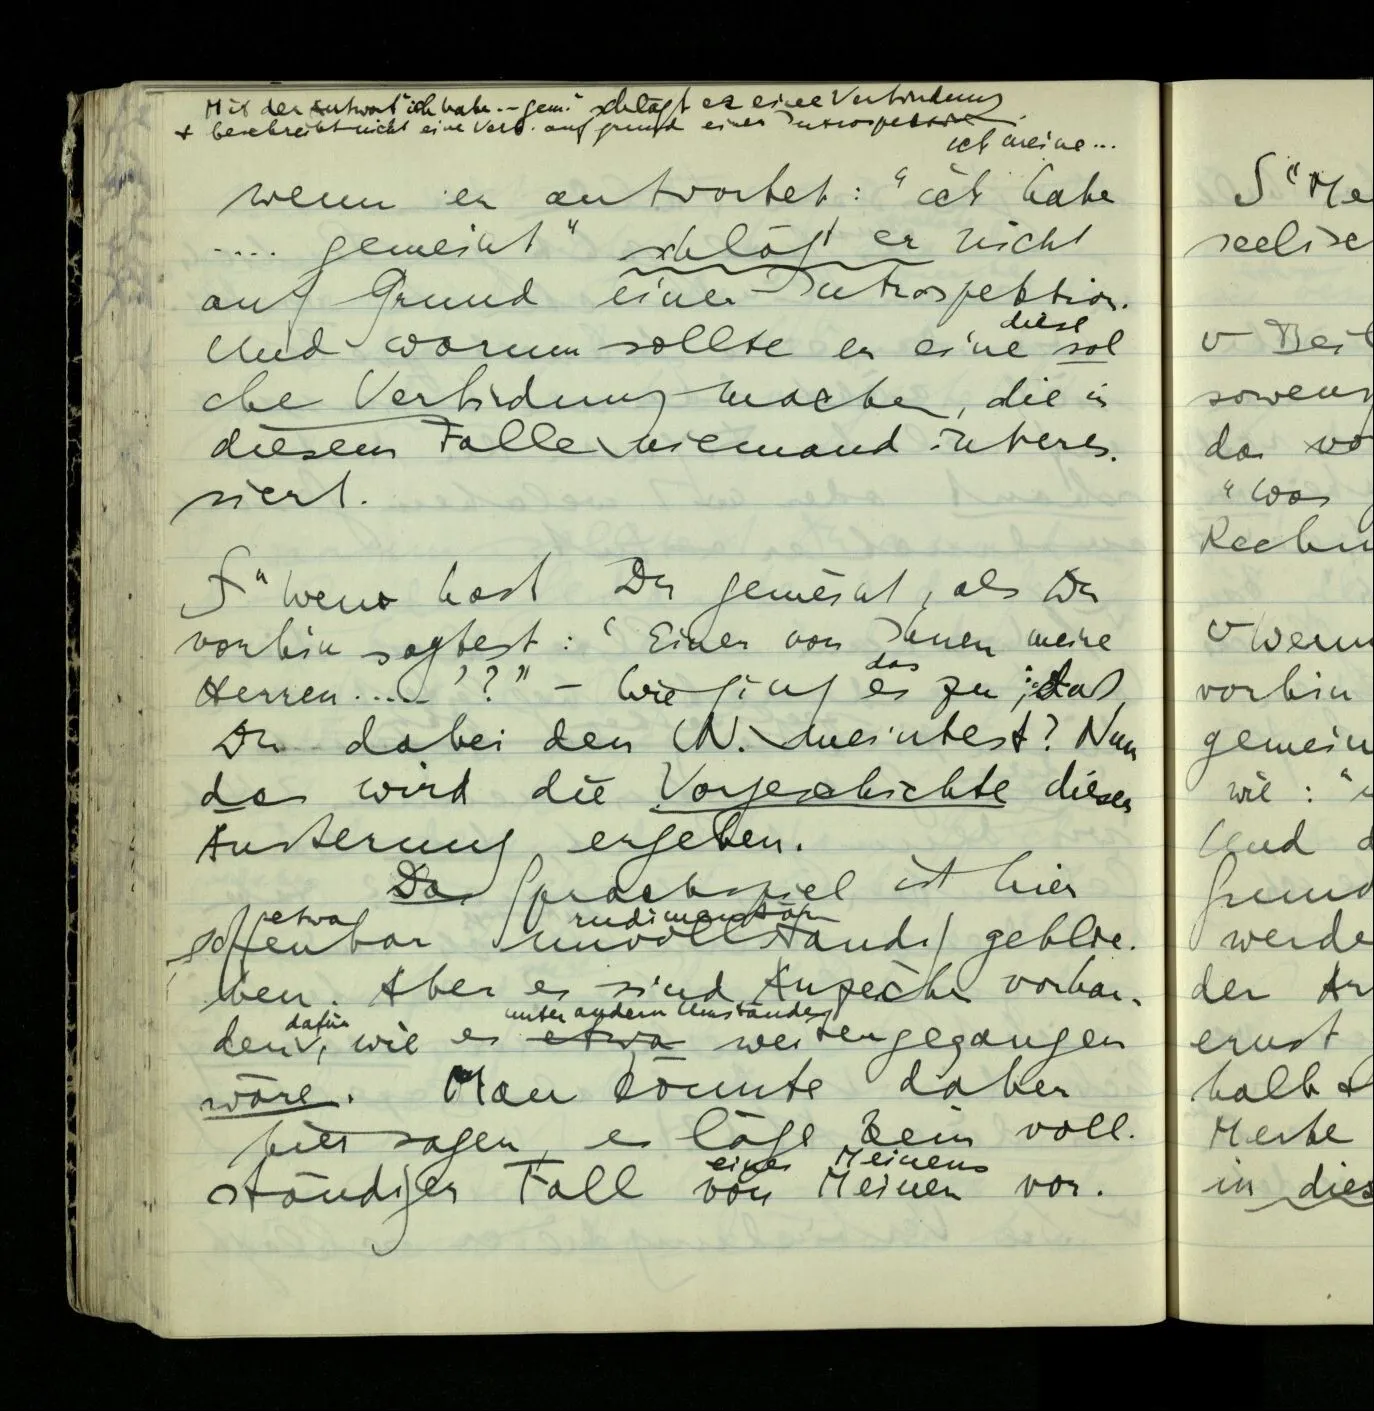 Mit der Antwort "ich habe .. gem." schlägt er eine Verbindung
+ beschreibt nicht eine Verb. auf grund einer Introspektion.
ich meine...
wenn er antwortet: "ich habe
.... gemeint" schlägt er nicht
auf Grund einer Introspektion.
Und warum sollte er eine diese sol
che Verbindung machen, die in
diesem Falle niemand interes.
siert.
S "Wen hast Du gemeint, als Du
vorhin sagtest: 'Einer von Ihnen meine
Herren .... '?" – Wie ging es das zu, daß
Du dabei den N. meintest? Nun
das wird die Vorgeschichte dieser
Äußerung ergeben.
Das Sprachspiel ist hier
offenbar etwa unvollständig rudimentär geblie.
ben. Aber es sind Anzeichen vorhan.
den dafür, wie es etwa unter andern Umständen weitergegangen
wäre. Man könnte daher
hier sagen, es läge kein voll.
ständiger Fall von eines Meinens Meinen vor.
S "Me
seelisc
v Bei
soweni
da vo
"Was
Rechn
v Wenn
vorhin
gemein
wie: "
Und d
Grund
werde
der
ernst
halb
Merke
in dies